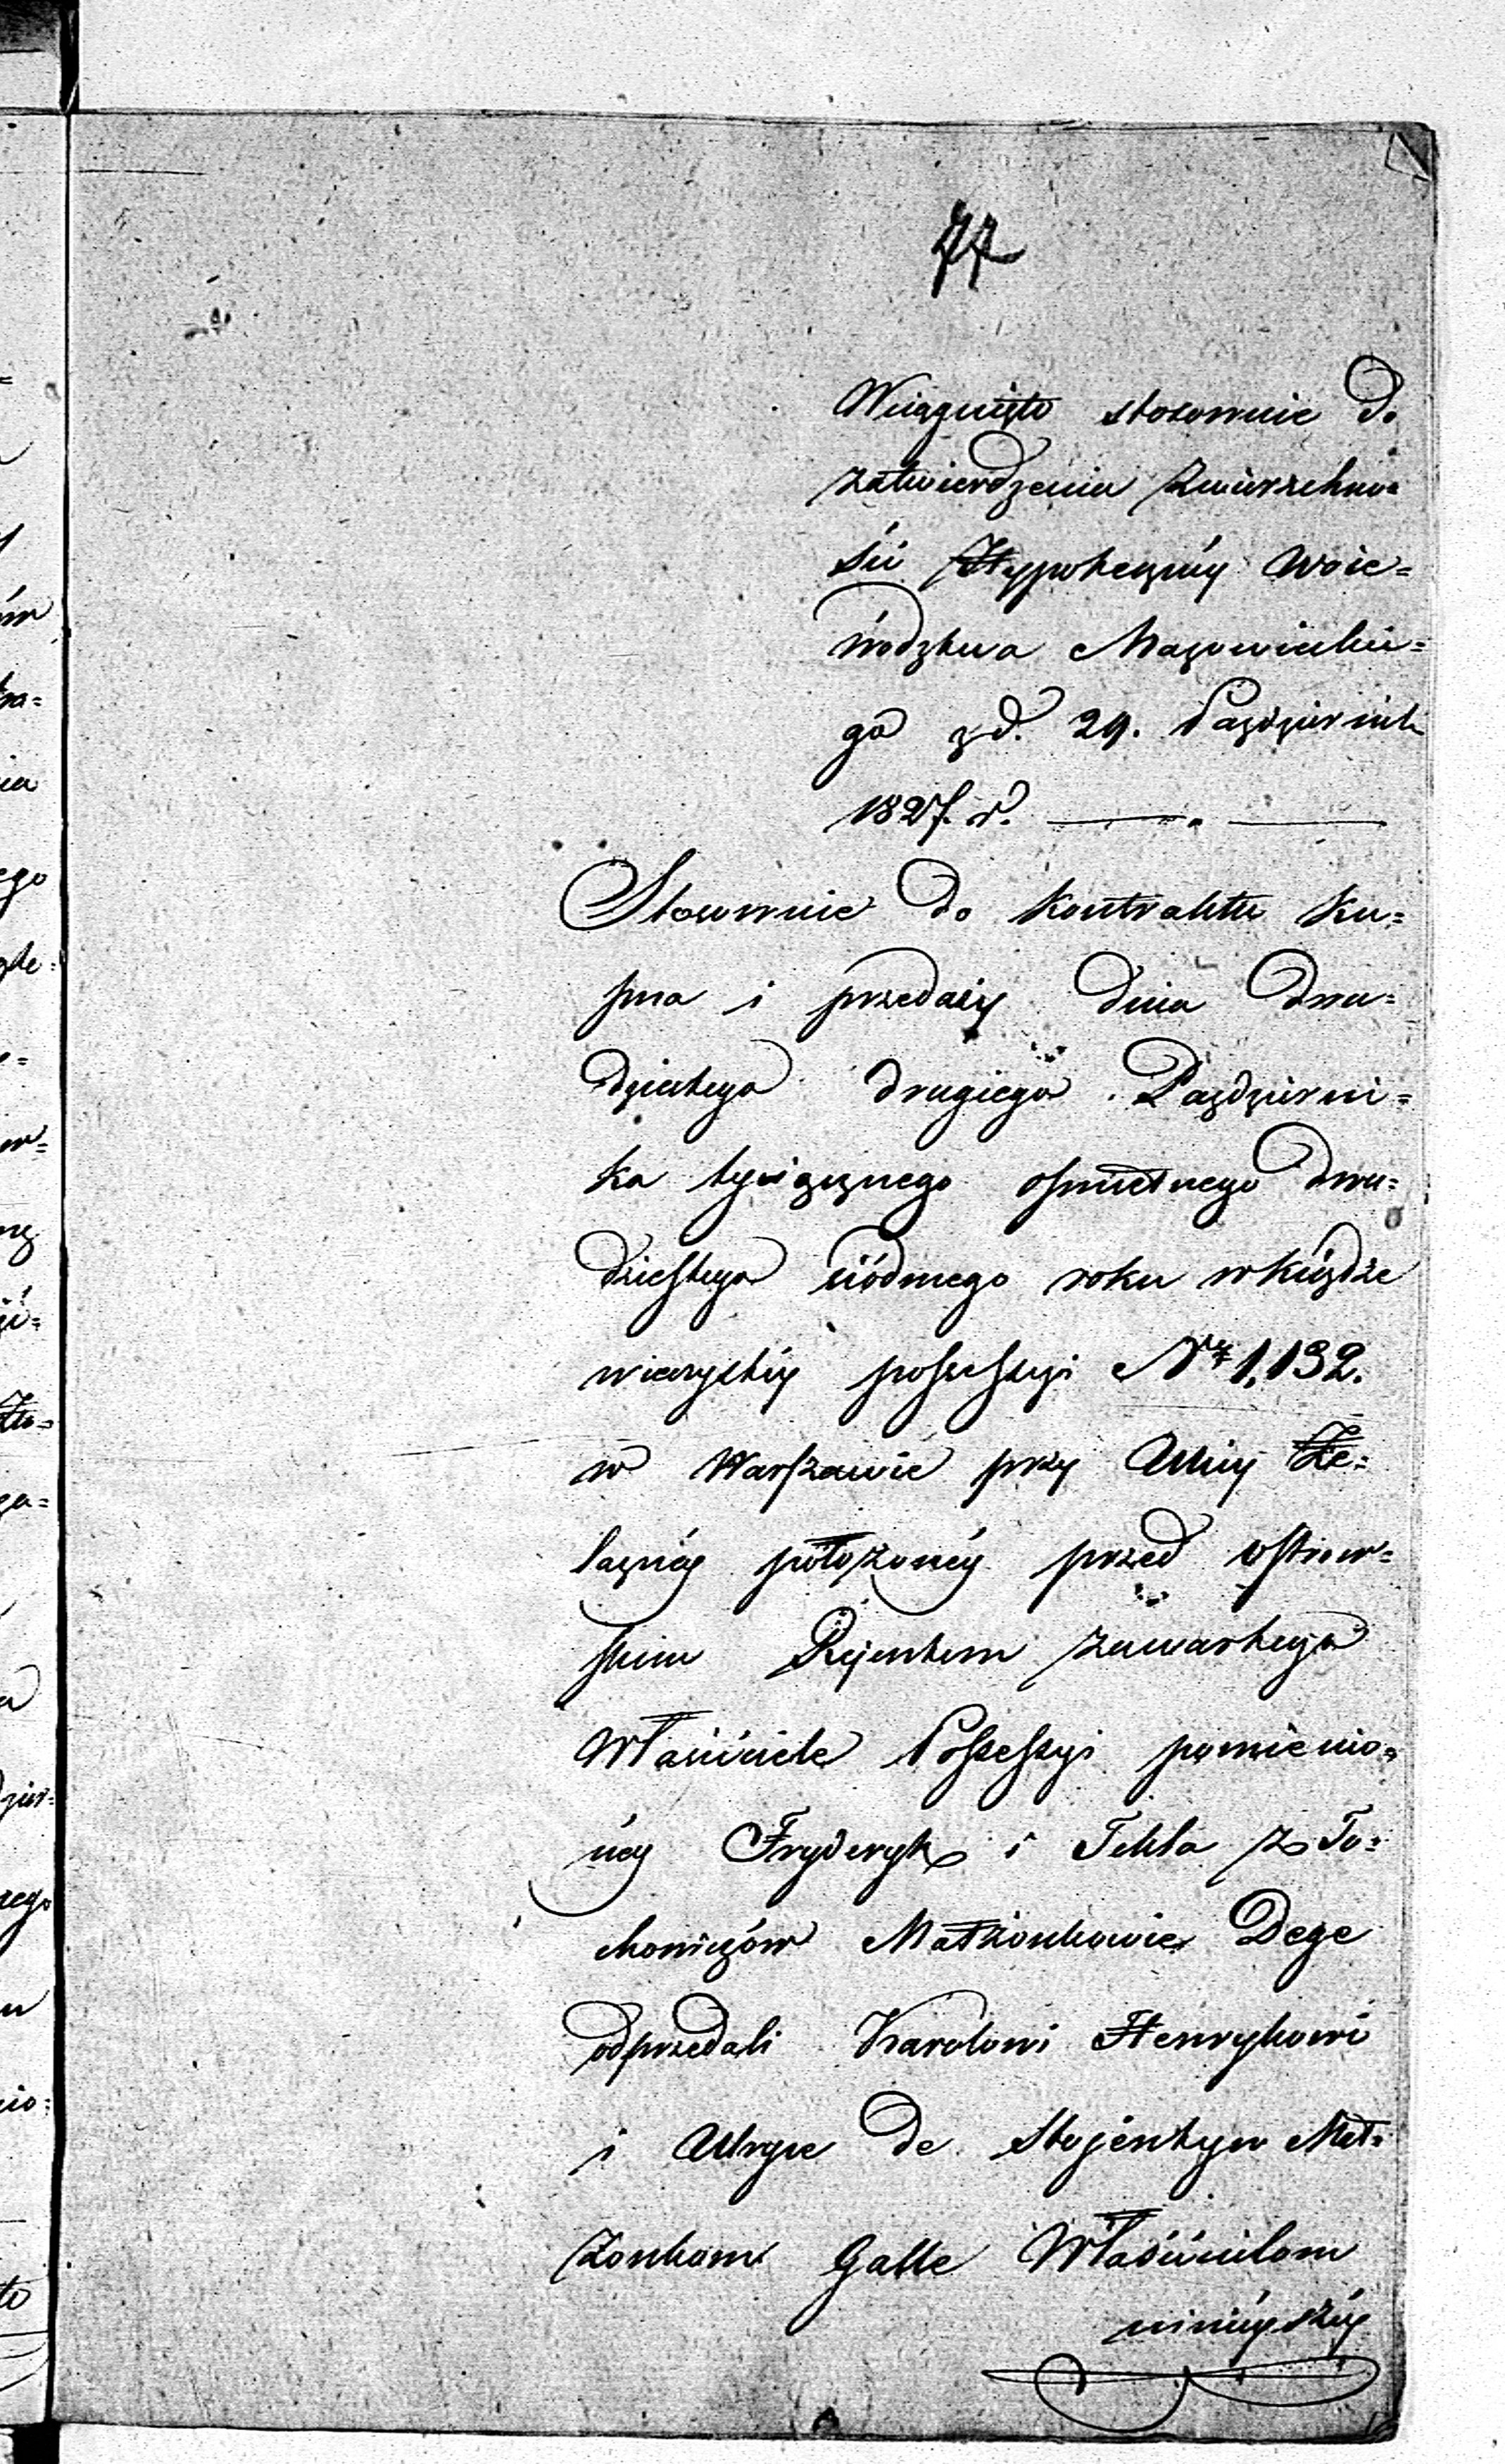 77
Wciągnięto stosownie do
zatwierdzenia Zwierzchno=
ści Hyppoteczney Woie=
wodztwa Mazowieckie=
go z d. 29. Października
1827. r.
Stosownie do Kontraktu Ku=
pna i przedaży dnia dwu=
dziestego drugiego Październi=
ka tysiącznego osmsetnego dwu=
dziestego siódmego roku w Księdze
wieczystéy possessyi Nr 1,132.
w Warszawie przy Ulicy Że=
laznéy położonéy przed Ostrow=
skim Rejentem zawartego
Właściciele Possessyi pomienio=
néy Fryderyk i Tekla z To=
chowiczów Małżonkowie Dege
odprzedali Karolowi Henrykowi
i de Stojentyn Mał=
żonkom Galle Właścicielom
ninieyszéy